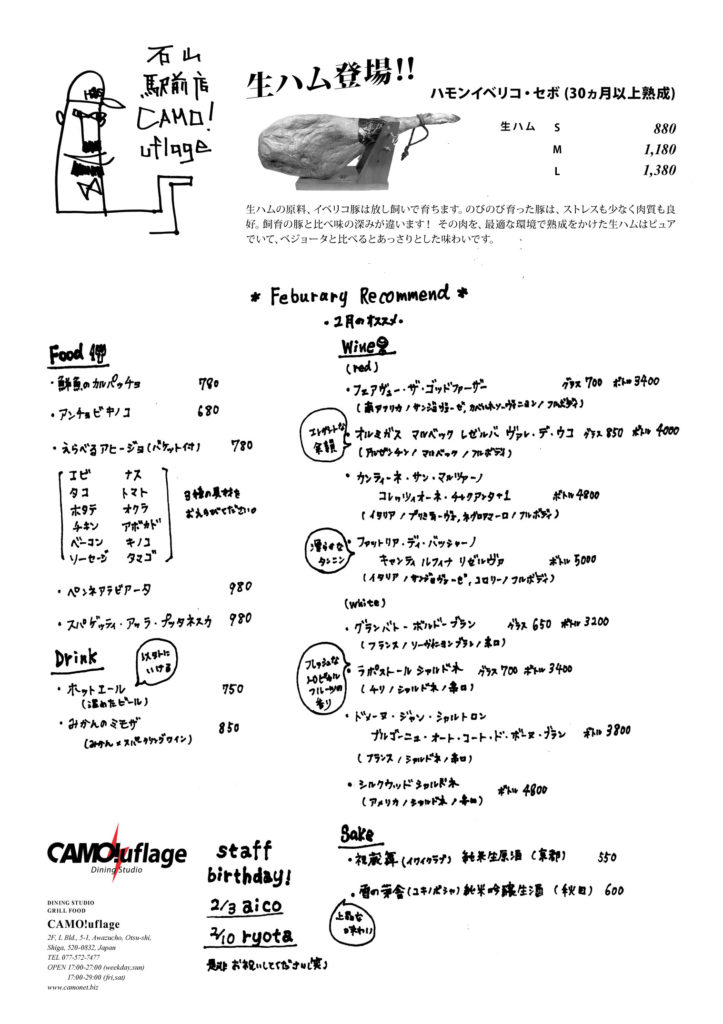 石山
駅前店
CAMO!
uflage
生ハム登場!!
ハモンイベリコ・セボ (30ヵ月以上熟成)
生ハム S 880
M 1,180
L 1,380
生ハムの原料、イベリコ豚は放し飼いで育ちます。のびのび育った豚は、ストレスも少なく肉質も良
好。飼育の豚と比べ味の深みが違います! その肉を、最適な環境で熟成をかけた生ハムはピュア
でいて、ベジョータと比べるとあっさりとした味わいです。
* Feburary Recommend *
・2月のオススメ・
Food
・鮮魚のカルパッチョ 780
・アンチョビキノコ 680
・えらべるアヒージョ(バケット付) 780
エビ ナス
タコ トマト
ホタテ オクラ
チキン アボカド
ベーコン キノコ
ソーセージ タマゴ
3種の具材を
おえらびください。
・ペンネアラビアータ 980
・スパゲッティ・アッラ・プッタネスカ 980
Drink
以外に
いける
・ホットエール 750
(温めたビール)
・みかんのミモザ 850
(みかん×スパークリングワイン)
Wine
(red)
・フェアヴュー・ザ・ゴッドファーザー グラス 700 ボトル 3400
(南アフリカ / サンジョヴェーゼ, カベルネソーヴィニヨン / フルボディ)
エレガントな
余韻
・オルミガス マルベック レゼルバ ヴァレ・デ・ウコ グラス 850 ボトル 4000
(アルゼンチン / マルベック / フルボディ)
・カンティーネ・サン・マルツァーノ
コレッツィオーネ・チンクアンタ+1 ボトル 4800
(イタリア / プリミティーヴォ, ネグロアマーロ / フルボディ)
滑らかな
タンニン
・ファットリア・ディ・バッシャーノ
キャンティ ルフィナ リゼルヴァ ボトル 5000
(イタリア / サンジョヴェーゼ, コロリーノ / フルボディ)
(white)
・グランバトー・ボルドーブラン グラス 650 ボトル 3200
(フランス / ソーヴィニヨンブラン / 辛口)
フレッシュな
トロピカル
フルーツの
香り
・ラポストール シャルドネ グラス 700 ボトル 3400
(チリ / シャルドネ / 辛口)
・ドメーヌ・ジャン・シャルトロン
ブルゴーニュ・オート・コート・ド・ボーヌ・ブラン ボトル 3800
(フランス / シャルドネ / 辛口)
・シルクウッドシャルドネ ボトル 4800
(アメリカ / シャルドネ / 辛口)
Sake
・祝蔵舞 (イワイクラブ) 純米生原酒 (京都) 550
・雪の茅舎 (ユキノボウシャ) 純米吟醸生酒 (秋田) 600
上品な
味わい
CAMO!uflage
Dining Studio
DINING STUDIO
GRILL FOOD
CAMO!uflage
2F, L Bld., 5-1, Awazucho, Otsu-shi,
Shiga, 520-0832, Japan
TEL 077-572-7477
OPEN 17:00-27:00 (weekday,sun)
17:00-29:00 (fri,sat)
www.camonet.biz
staff
birthday!
2/3 aico
2/10 ryota
是非お祝いしてください(笑)